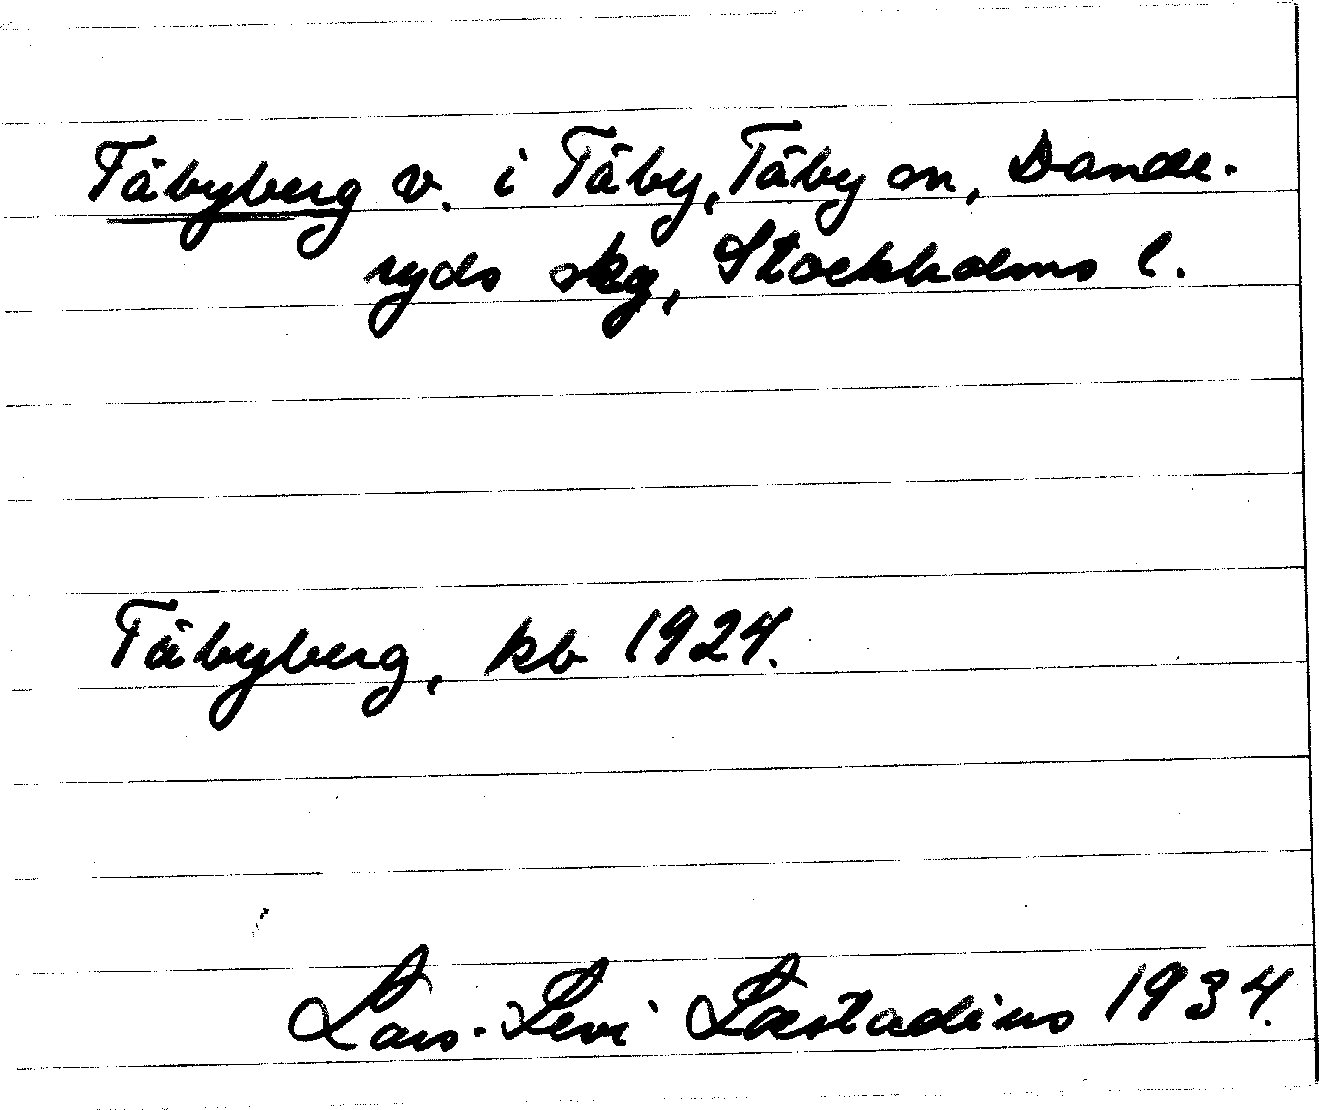 Täbyberg v. i Täby, Täby sn, Dande-
ryds skg, Stockholms l.
Täbyberg, kb 1924.
Lars-Levi Læstadius 1934.